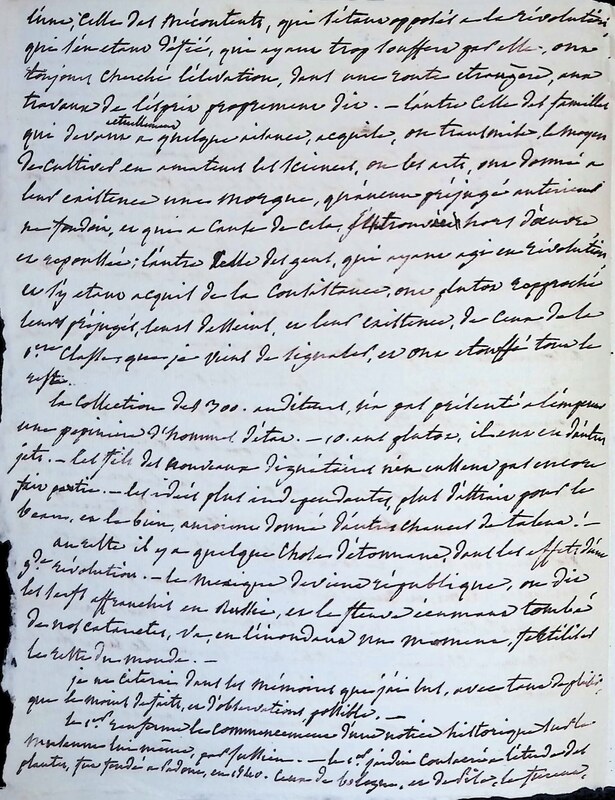 l'une, celle des mécontents, qui s'étant opposés à la révolution,
qui s'en étant défié, qui ayant trop souffert par elle, ont
toujours cherché l'élévation, dans une route étrangère, aux
travaux de l'esprit proprement dit. — l'autre celle des familles
qui devant actuellement à quelque aisance, acquise, ou transmise, le moyen
de cultiver en amateurs les sciences, ou les arts, ont donné à
leur existence une morgue, qu'aucun préjugé antérieur
ne fondoit, et qui à cause de cela, hors d'œuvre
et repoussée; l'autre celle des gens, qui ayant agi en révolution
et s'y étant acquis de la consistance, ont plutôt rapproché
leurs préjugés, leurs desseins, et leur existence, de ceux de la
1ère classe, que je viens de signaler, et ont étouffé tout le
reste.
la collection des 300. auditeurs, n'a pas présenté à l'empereur
une pépinière d'hommes d'état. — 10. ans plutôt, il en eu d'autres
jets. — les fils des nouveaux dignitaires n'en eussent pas encore
fait partie. — les idées plus indépendantes, plus d'attrait pour le
beau, et le bien, auroient donné d'autres chances de talent! —
au reste il y a quelque chose d'étonnant, dans les effets d'une
gde révolution. — le mexique devient république, on dit
les serfs affranchis en Russie, et le fleuve écumant tombé
de nos cataractes, va, en l'inondant un moment, fertiliser
le reste du monde. —
je ne citerai dans les mémoires que j'ai lus, avec tant de plaisir,
que le moins de faits, et d'observations, possible. —
le 1er renferme le commencement d'une notice historique sur le
muséum lui même, par Jussieu. — le 1er jardin consacré à l'étude des
plantes, fut fondé à Padoue, en 1540. ceux de bologne, et de Pise, le furent,